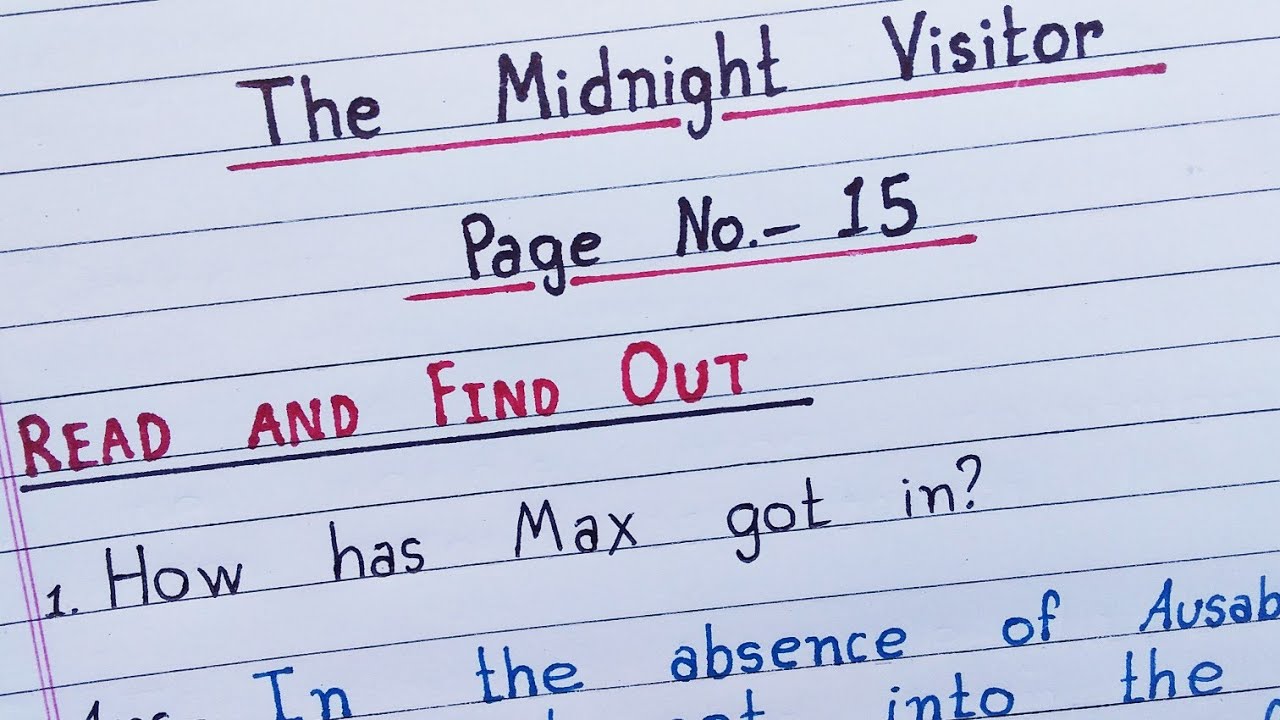 The Midnight Visitor
Page No.- 15
READ AND FIND OUT
1. How has Max got in?
Ans. In the absence of Ausab
into the